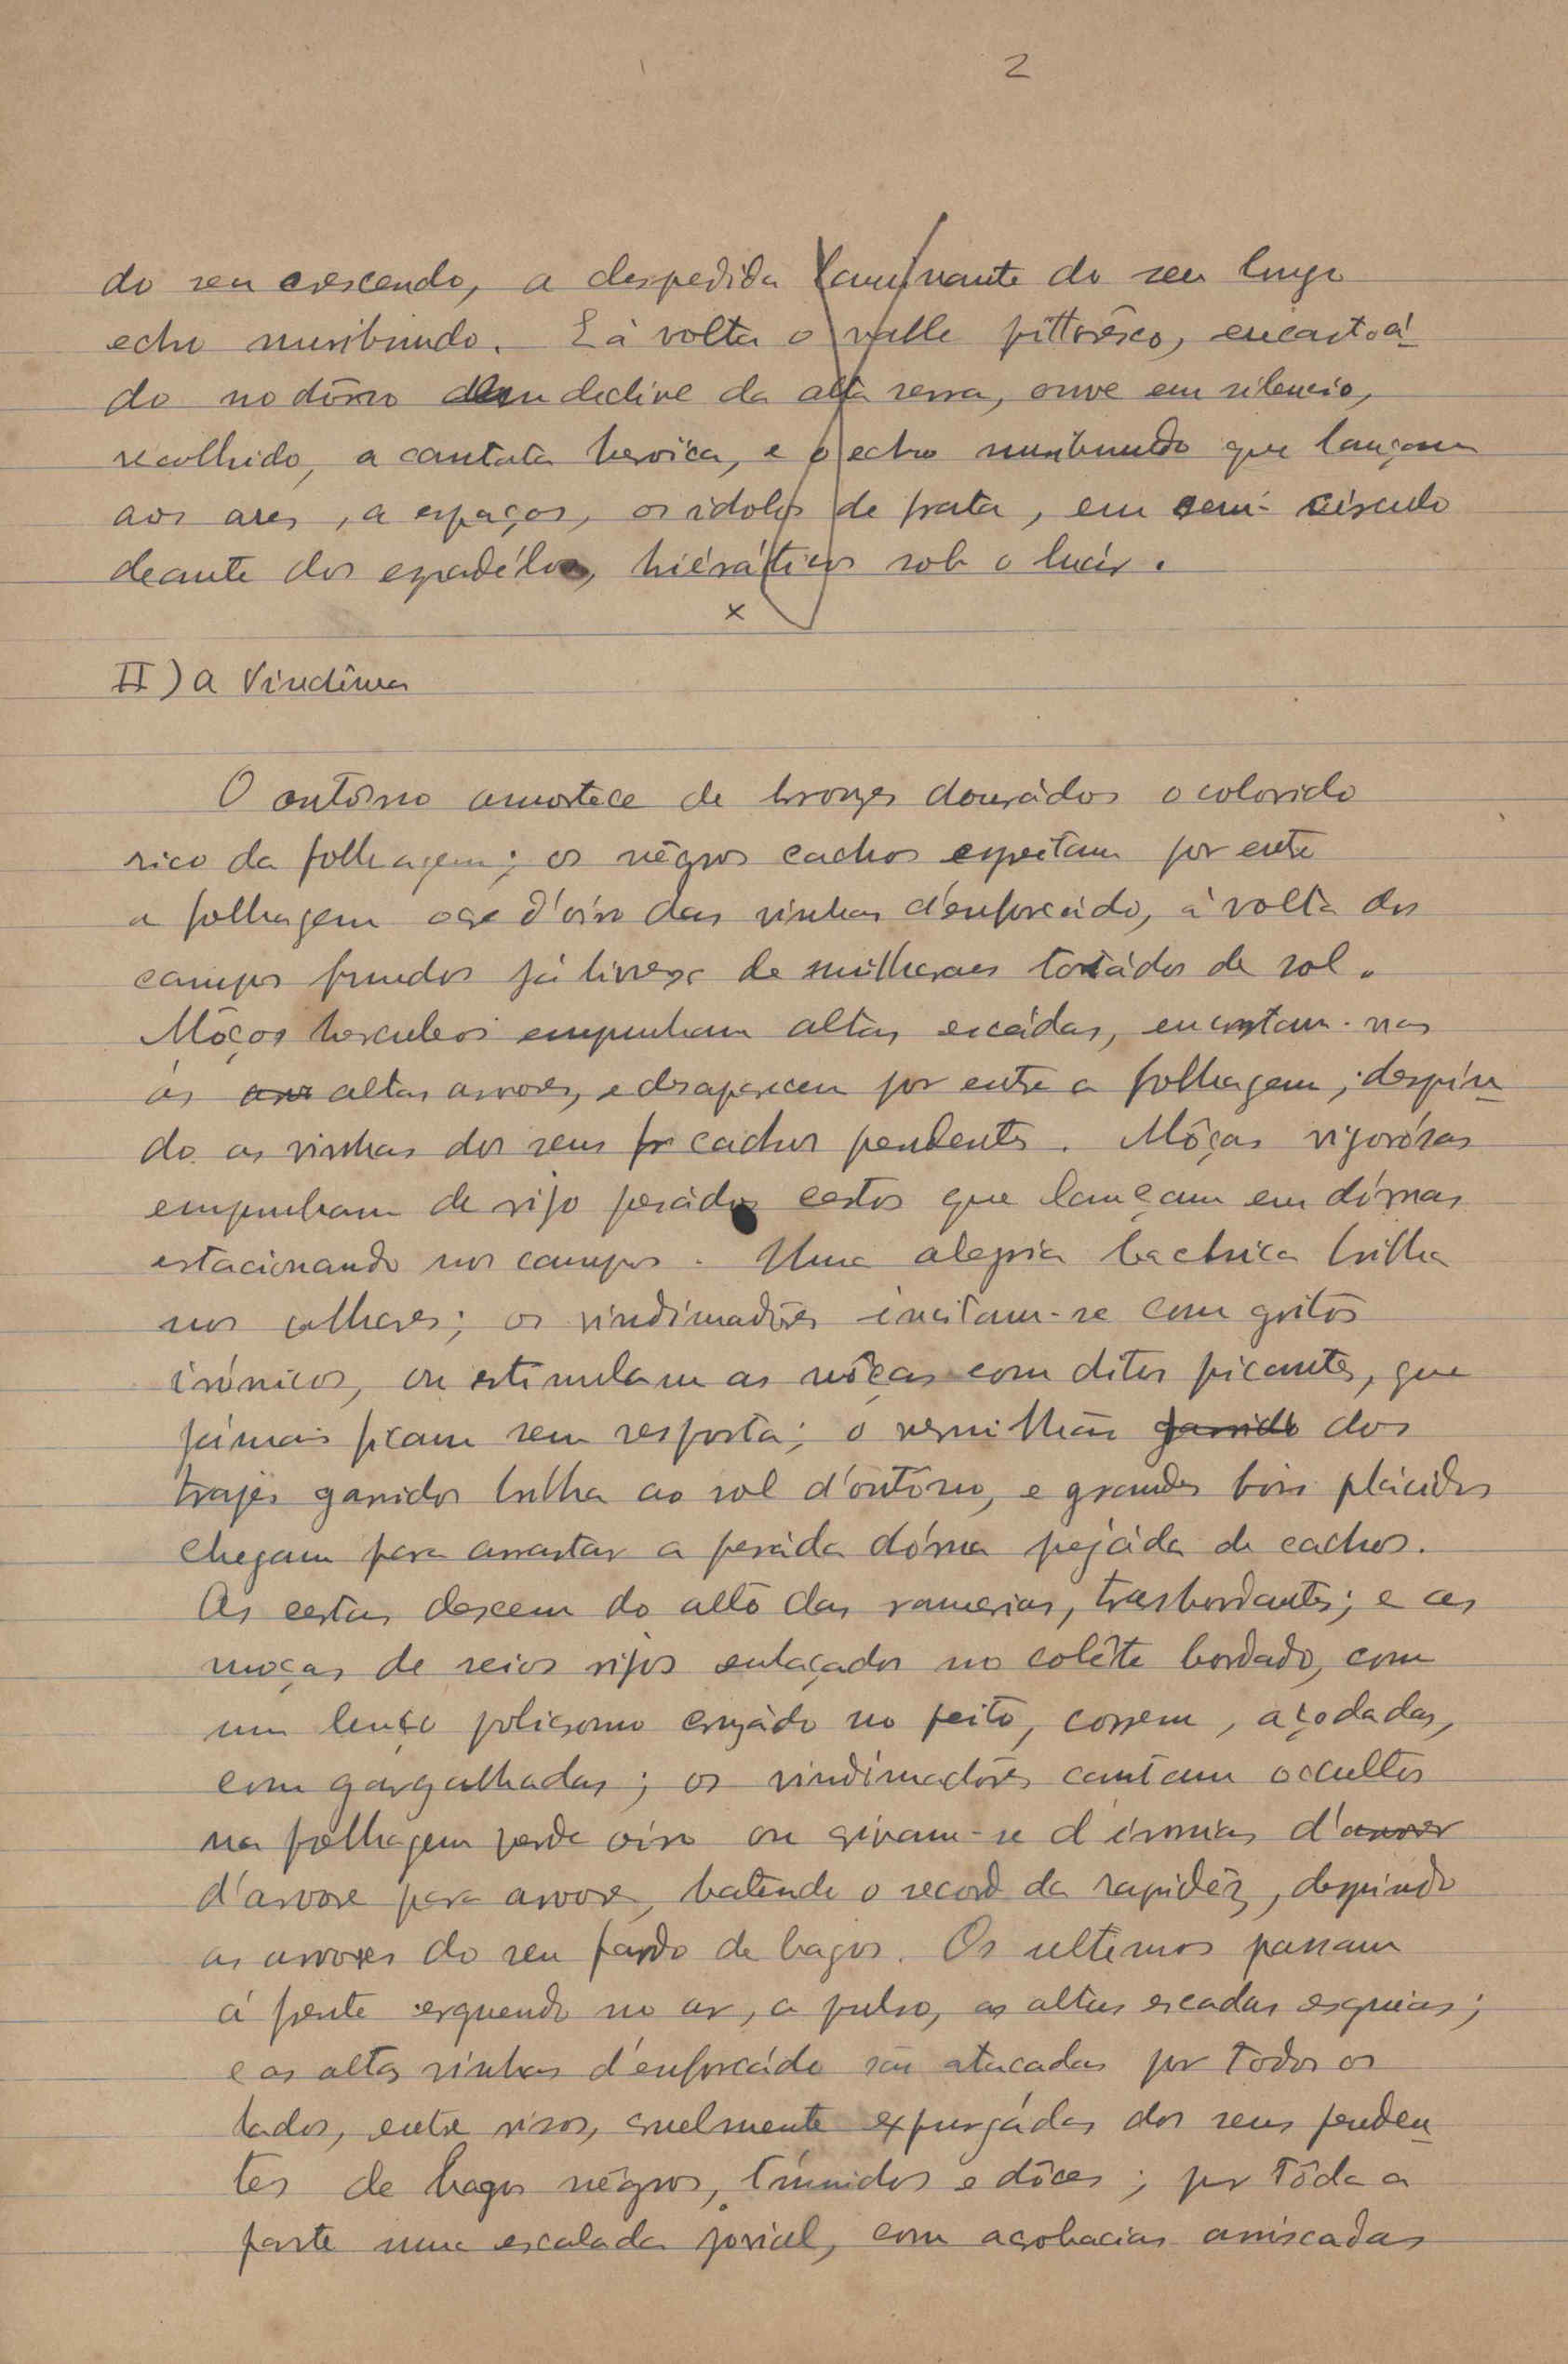 2
do seu crescendo, a despedida do seu longo
echo moribundo. E à volta o valle pittorêsco, encastoá-
do no dôrso dum declive da alta serra, ouve em silencio,
recolhido, a cantata heroïca, e o echo moribundo que lançam
aos ares, a espaços, os idolos de prata, em semi-circulo
deante dos espadélos, hiéráticos sob o luár.
x
II) A Vindîma
O outôno amortece de bronzes dourádos o colorido
rico da folhagem; os négros cachos espreitam por entre
a folhagem d'oiro das vinhas d'enforcádo, à volta dos
campos fundos já livres de milharaes tostádos de sol.
Môços herculeos empunham altas escádas, encostam-nas
ás altas arvores, e desaparecem por entre a folhagem, despin-
do as vinhas dos seus cachos pendentes. Môças vigorósas
empunham de rijo pesádos cestos que lançam em dórnas
estacionando nos campos. Uma alegria bachica brilha
nos olhares; os vindimadôres incitam-se com gritos
irónicos, ou estimulam as môças com ditos picantes, que
jámais ficam sem resposta; o vermilhão garrido dos
trajes garridos brilha ao sol d'outôno, e grandes bois plácidos
chegam para arrastar a pesáda dórna pejáda de cachos.
As cestas descem do alto das ramarias, trasbordantes; e as
moças de seios rijos enlaçados no colête bordado, com
um lenço policromo cruzádo no peito, correm, açodadas,
com gargalhadas; os vindimadôres cantam occultos
na folhagem verde oiro ou crivam-se d'ironias d'arvor
d'arvore para arvore, batendo o record da rapidêz, despindo
as arvores do seu fardo de bagos. Os ultimos passam
á frente erguendo no ar, a pulso, as altas escadas esguias;
e as altas vinhas d'enforcádo são atacadas por todos os
lados, entre risos, cruelmente expurgádas dos seus penden-
tes de bagos négros, túmidos e dôces; por tôda a
parte uma escalada jovial, com acrobacias arriscadas